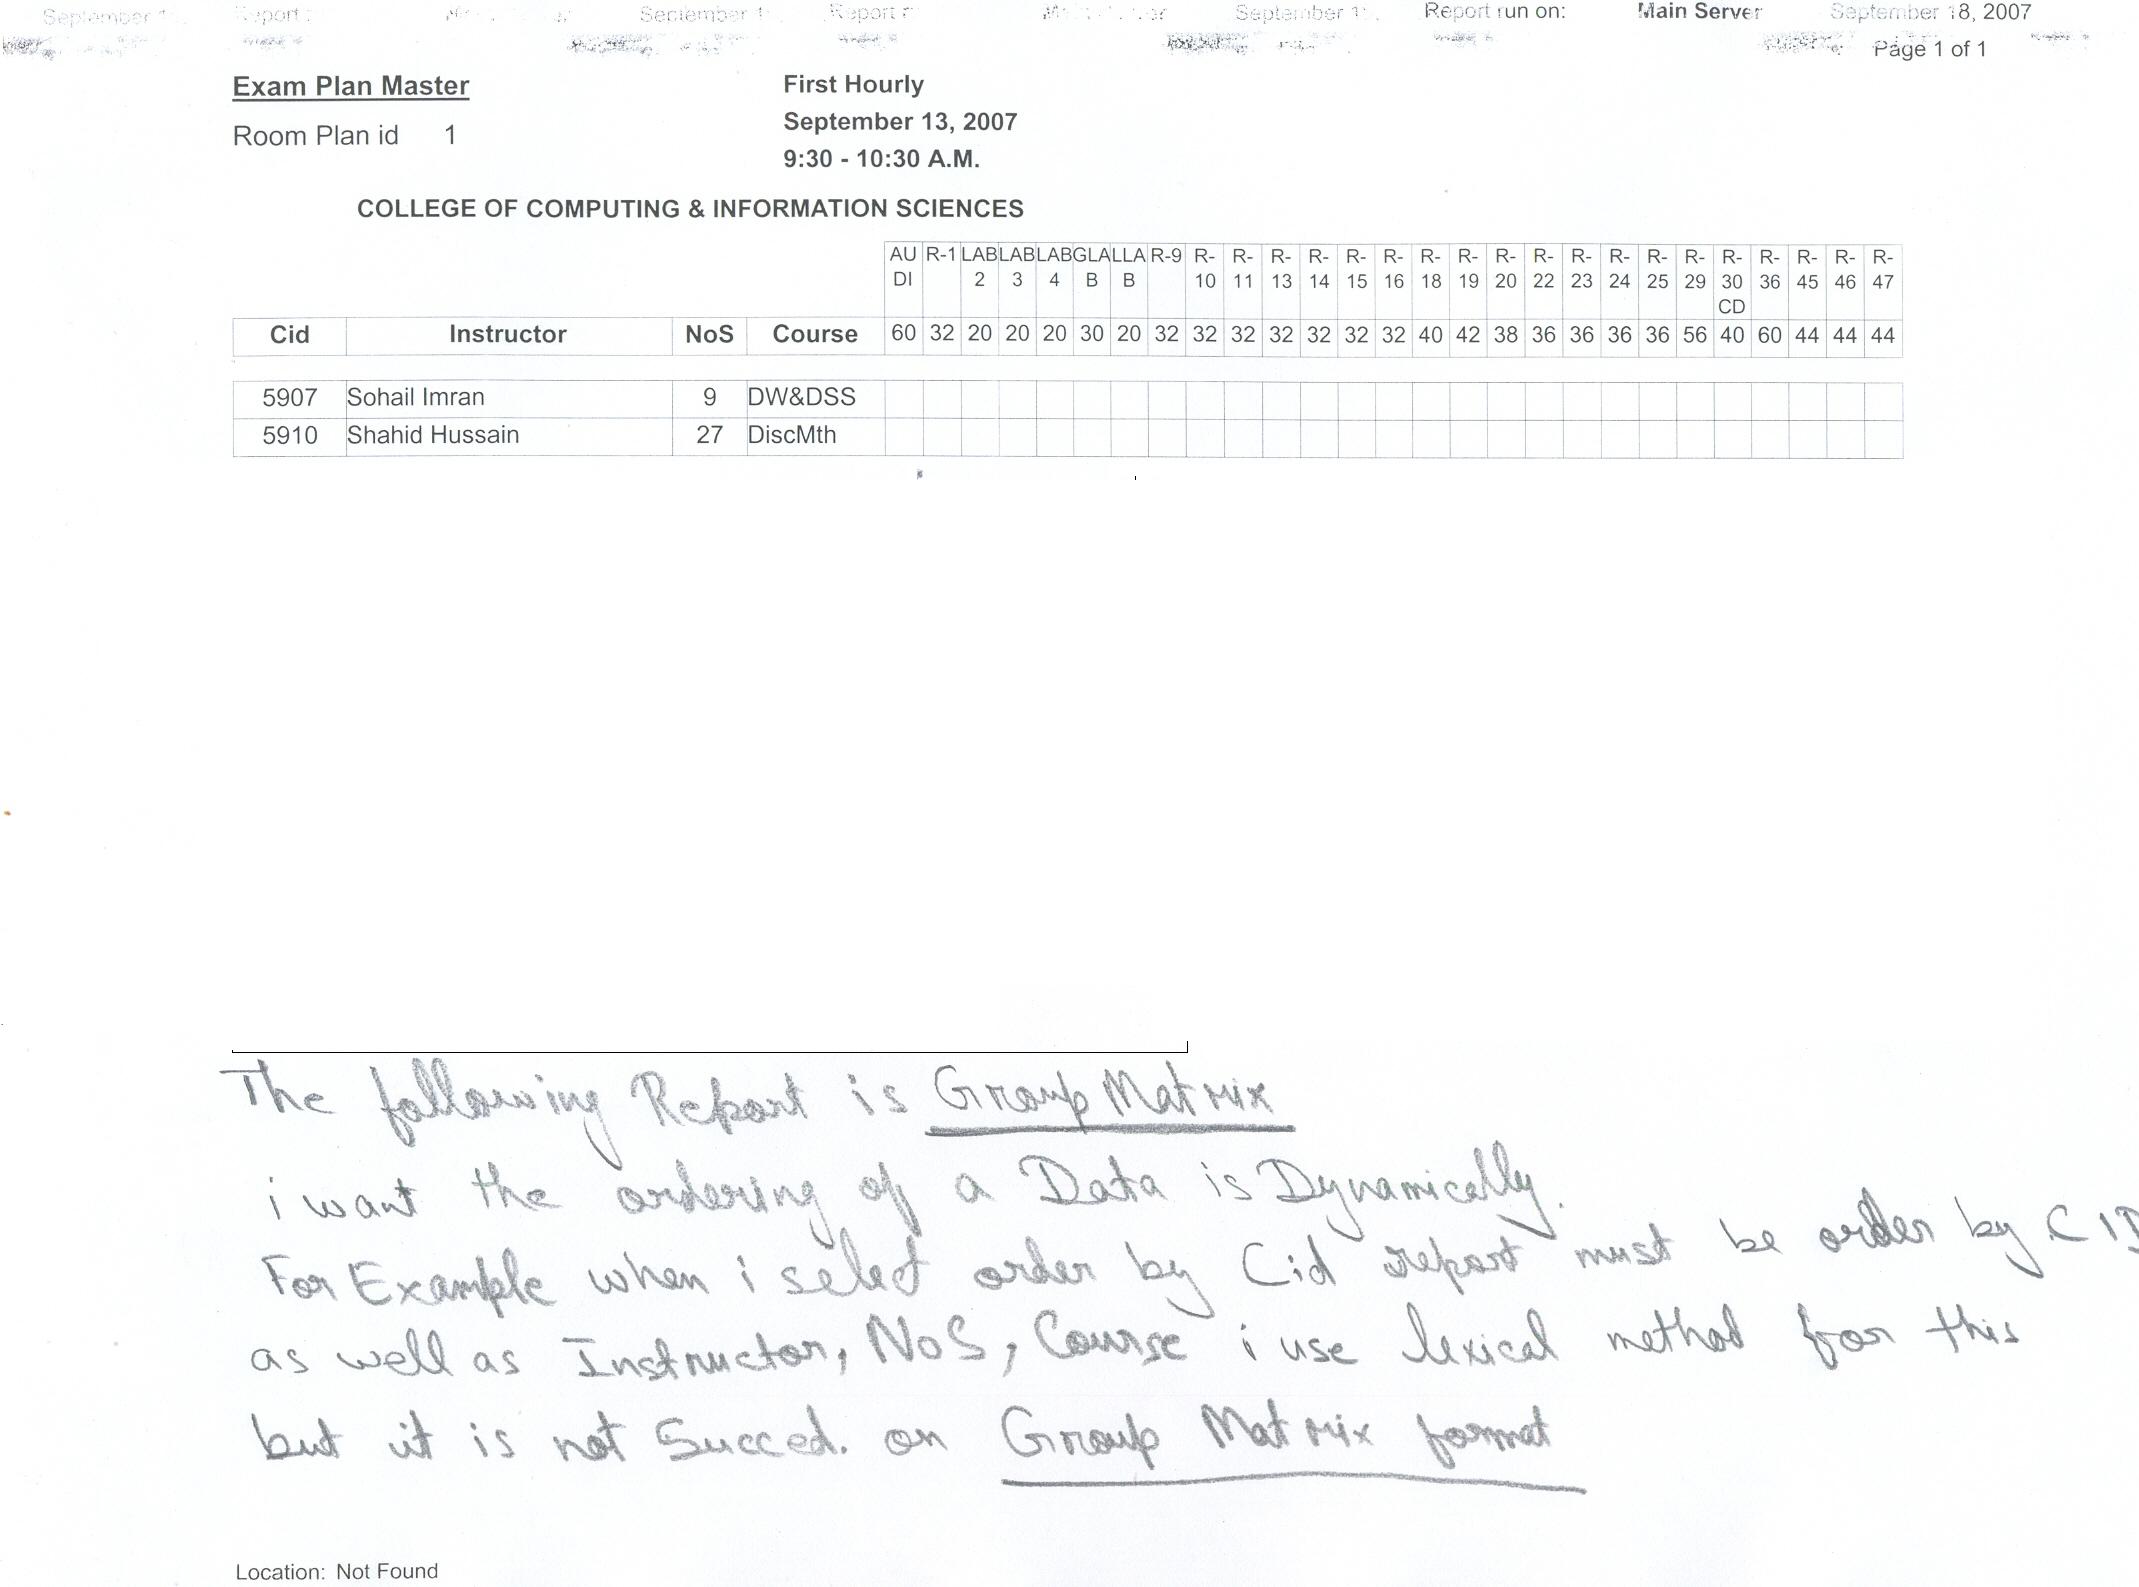 Report run on: Main Server September 18, 2007
Page 1 of 1
Exam Plan Master First Hourly
Room Plan id 1 September 13, 2007
9:30 - 10:30 A.M.
COLLEGE OF COMPUTING & INFORMATION SCIENCES
AU R-1 LAB LAB LAB GLA LLA R-9 R- R- R- R- R- R- R- R- R- R- R- R- R- R- R- R- R- R- R-
DI 2 3 4 B B 10 11 13 14 15 16 18 19 20 22 23 24 25 29 30 36 45 46 47
CD
Cid Instructor NoS Course 60 32 20 20 20 30 20 32 32 32 32 32 32 32 40 42 38 36 36 36 36 56 40 60 44 44 44
5907 Sohail Imran 9 DW&DSS
5910 Shahid Hussain 27 DiscMth
The following Report is Group Matrix
i want the ordering of a Data is Dynamically.
For Example when i select order by Cid report must be order by CID
as well as Instructor, NoS, Course i use lexical method for this
but it is not Succed. on Group Matrix format
Location: Not Found